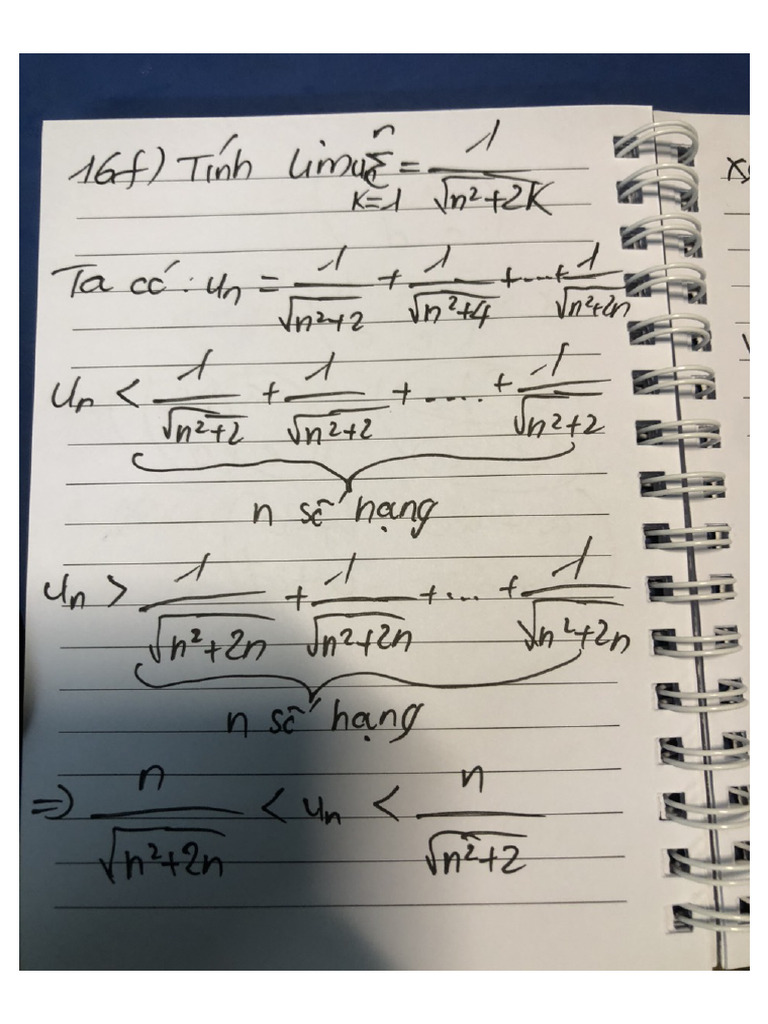 16f) Tính lim uₙ = ∑ₖ₌₁ⁿ 1/√(n²+2K)
Ta có: uₙ = 1/√(n²+2) + 1/√(n²+4) + ... + 1/√(n²+2n)
uₙ < 1/√(n²+2) + 1/√(n²+2) + ..... + 1/√(n²+2)
n số hạng
uₙ > 1/√(n²+2n) + 1/√(n²+2n) + ... + 1/√(n²+2n)
n số hạng
=> n/√(n²+2n) < uₙ < n/√(n²+2)